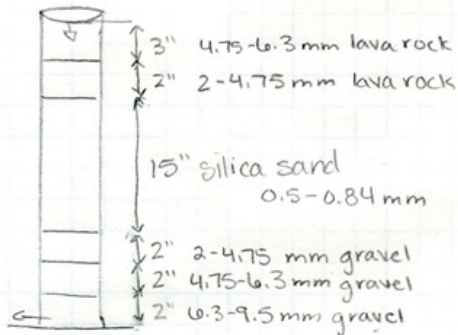 3" 4.75-6.3 mm lava rock
2" 2-4.75 mm lava rock
15" silica sand
0.5-0.84 mm
2" 2-4.75 mm gravel
2" 4.75-6.3 mm gravel
2" 6.3-9.5 mm gravel